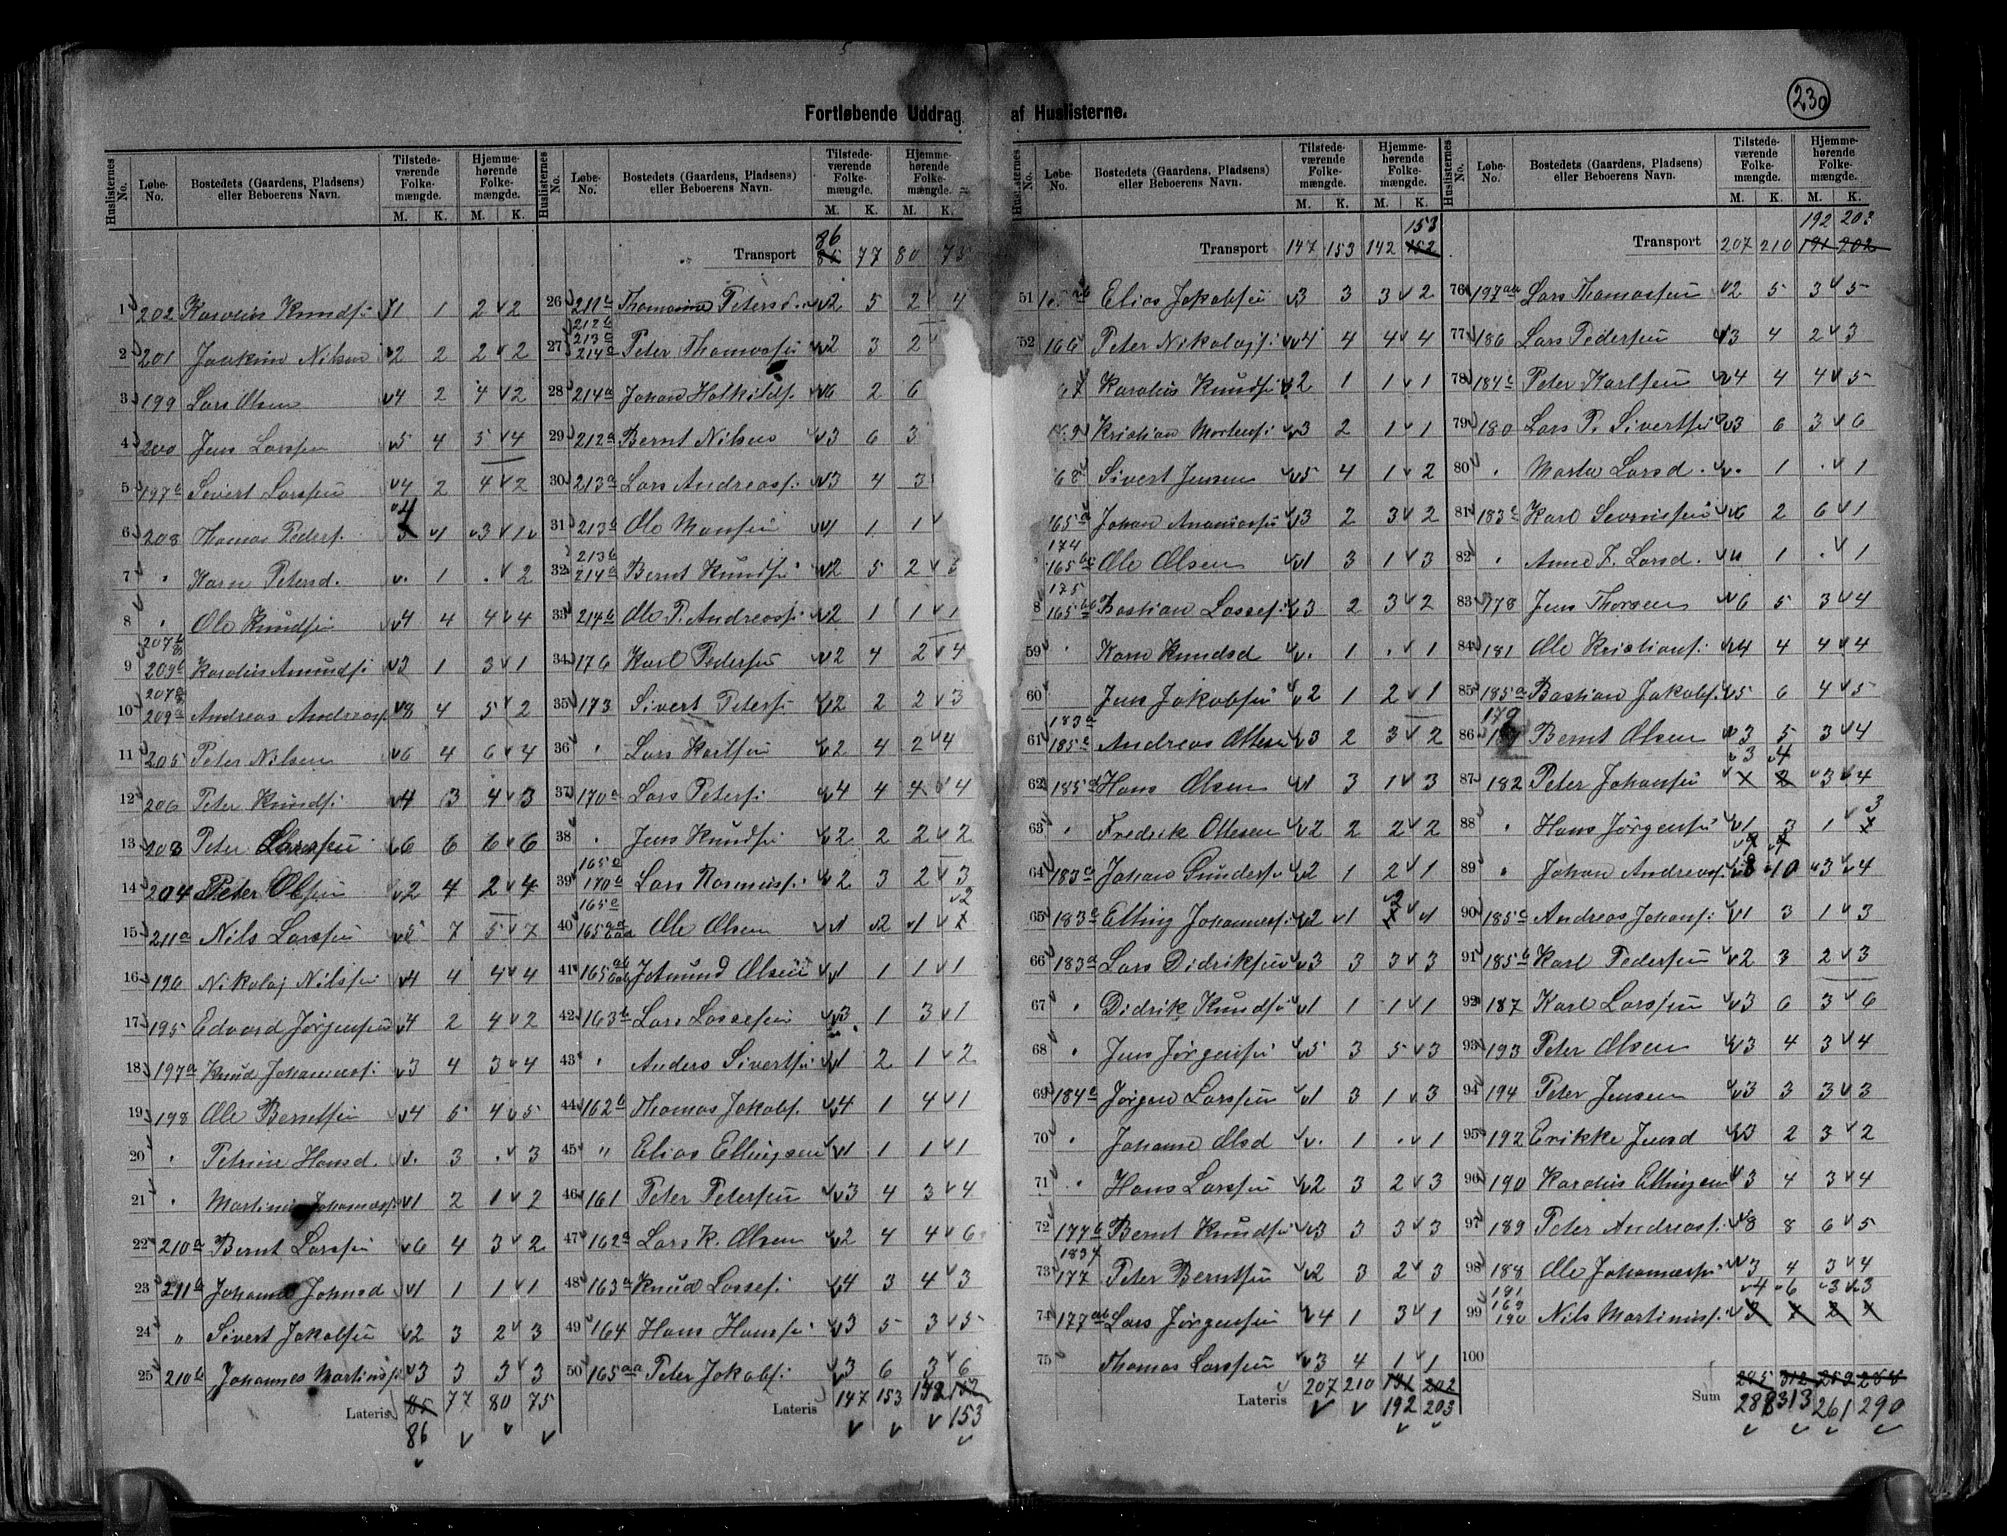 230
Fortløbende Uddrag af Huslisterne.
Huslisternes No. Løbe-No. Bostedets (Gaardens, Pladsens) eller Beboerens Navn. Tilstedeværende Folkemængde. M. K. Hjemmehørende Folkemængde. M. K.
1 202 Karolius Knuds: 1 1 2 2
2 201 Joakim Nilsen 2 2 2 2
3 199 Lars Olsen 4 2 4 2
4 200 Jens Larssen 5 4 5 4
5 197b Sivert Larssen 4 2 4 2
6 208 Thomas Peders. 4 1 3 1
7 " Karn Petersd. . 1 . 2
8 " Ole Knudsen 4 4 4 4
9 207b 209b Karolius Amunds: 3 1 3 1
10 209a Andreas Andreass. 8 4 5 2
11 205 Peter Nilsen 6 4 6 4
12 206 Peter Knuds: 4 3 4 3
13 203 Peter Larssen 6 6 6 6
14 204 Peter Olsen 2 4 2 4
15 211a Nils Larssen 5 7 5 7
16 196 Nikolaj Nilssen 4 4 4 4
17 195 Edvard Jørgensen 4 2 4 2
18 197a Knud Johanness. 3 4 3 4
19 198 Ole Berntsen 4 5 4 5
20 " Petrine Hansd. . 3 . 3
21 " Martinus Johanness. 1 2 1 2
22 210a Bernt Larssen 6 4 3 2
23 211b Johanna Johnsd 1 1 1 1
24 " Sivert Jakobsen 2 3 2 3
25 210b Johannes Martinss. 3 3 3 3
Lateris 85 77 80 75
86
Transport 86 77 80 75
26 211c Thomasine Petersd. 2 5 2 4
27 212b 213c 214c Peter Thomassen 2 3 2
28 214a Johan Halkilds. 6 2 6
29 212a Bernt Nilsen 3 6 3
30 213a Lars Andreass. 3 4 3
31 213a Ole Monsen 1 1 1
32 213b 214a Bernt Knuds: 2 5 2 3
33 214b Ole P. Andreass: 2 1 1 1
34 176 Karl Pedersen 2 4 2 4
35 173 Sivert Peters: 2 2 2 3
36 " Lars Karlsen 2 4 2 4
37 170a Lars Peters: 4 4 4 4
38 " Jens Knuds: 2 2 2 2
39 170a Lars Rasmuss. 2 3 2 3
40 Ole Olsen 1 2 1 2
41 Jetmund Olsen 1 1 1 1
42 163b Lars Lassesen 3 1 3 1
43 " Anders Sivertsen 1 2 1 2
44 162b Thomas Jakobs. 4 1 4 1
45 " Elias Ellingsen 1 1 1 1
46 161 Peter Petersen 3 4 3 4
47 162a Lars K. Olsen 2 4 4 6
48 163a Knud Lasses: 4 3 4 3
49 164 Hans Hanssen 3 5 3 5
50 165aa Peter Jakobs. 3 6 3 6
Lateris 147 153 142 152
153
153
Transport 147 153 142 152
51 Elias Jakobsen 3 3 3 2
52 166 Peter Nikolajs: 4 4 4 4
67 Karolius Knuds: 2 1 1 1
Kristian Mortens: 3 2 1 1
68 Sivert Jensen 5 4 1 2
165a Johan Ananiassen 3 2 3 2
174 165b Ole Olsen 1 3 1 3
8 175 165b Bastian Lasses. 3 2 3 2
59 " Karn Knudsd . 1 . 1
60 Jens Jakobsen 2 1 2 1
61 183a 185c Andreas Ottesen 3 2 3 2
62 185d Hans Olsen 1 3 1 3
63 " Fredrik Ottesen 2 2 2 2
64 183a Johan Gunders: 2 1 2 1
65 183a Elling Johanness. 2 1 2 1
66 183a Lars Didriksen 3 3 3 3
67 " Didrik Knuds: 1 1 1 1
68 " Jens Jørgensen 5 3 5 3
69 184a Jørgen Larssen 1 3 1 3
70 " Johanne Olsd . 1 . 1
71 " Hans Larssen 2 3 2 3
72 177b Bernt Knuds: 3 3 3 3
73 177 Peter Berntsen 2 3 2 3
74 177ab Lars Jørgensen 4 1 3 1
75 Thomas Larssen 3 4 1 1
Lateris 207 210 191 202
192 203
192 203
Transport 207 210 191 202
76 197aa Lars Thomassen 2 5 3 5
77 186 Lars Pedersen 3 4 2 3
78 184c Peter Karlsen 4 4 4 5
79 180 Lars P. Sivertsen 3 6 3 6
80 " Marta Larsd. . 1 . 1
81 183c Karl Severinsen 6 2 6 1
82 " Anne F. Larsd. " 1 . 1
83 178 Jens Thorsen 6 5 3 4
84 181 Ole Kristians: 4 4 4 4
85 185a Bastian Jakobs. 5 6 4 5
86 179 Bernt Olsen 3 5 3 4
87 182 Peter Johansen 3 4 3 4
88 " Hans Jørgensen 1 3 1 3
89 " Johan Andreass. 8 10 3 4
90 185c Andreas Johans: 1 3 1 3
91 185b Karl Pedersen 2 3 2 3
92 187 Karl Larssen 3 6 3 6
93 193 Peter Olsen 3 4 3 4
94 194 Peter Jensen 3 3 3 3
95 192 Erikke Jensd 3 2 3 2
96 190 Karolius Ellingsen 3 4 3 4
97 189 Peter Andreass. 8 8 6 5
98 188 Ole Johannessen 3 4 3 4
99 191 169 190 Nils Martinuss. 4 6 3 3
100
Sum 285 312 259 288
288 313 261 290